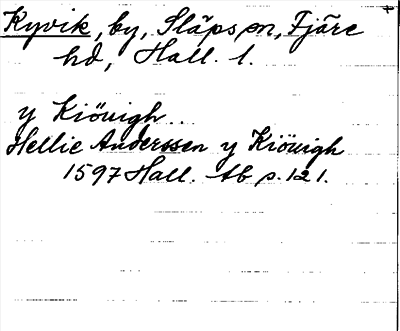 Kyvik, by, Släps sn, Fjäre
hd, Hall. l.
y Kiöuigh..
Hellie Anderssen y Kiöuigh
1597 Hall. Ab p. 121.